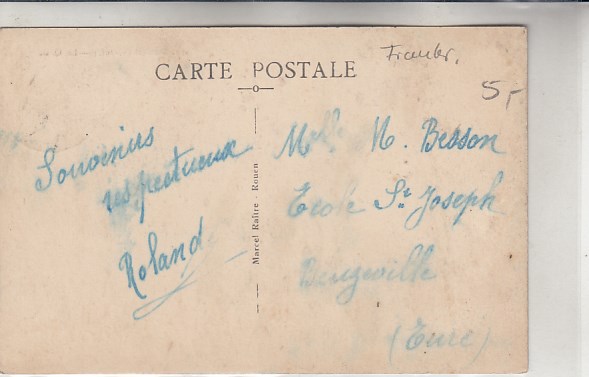 CARTE POSTALE
5,-
Souvenirs
respectueux
Roland
Marcel Raître - Rouen
Melle N. Besson
Ecole St Joseph
Beuzeville
(Eure)